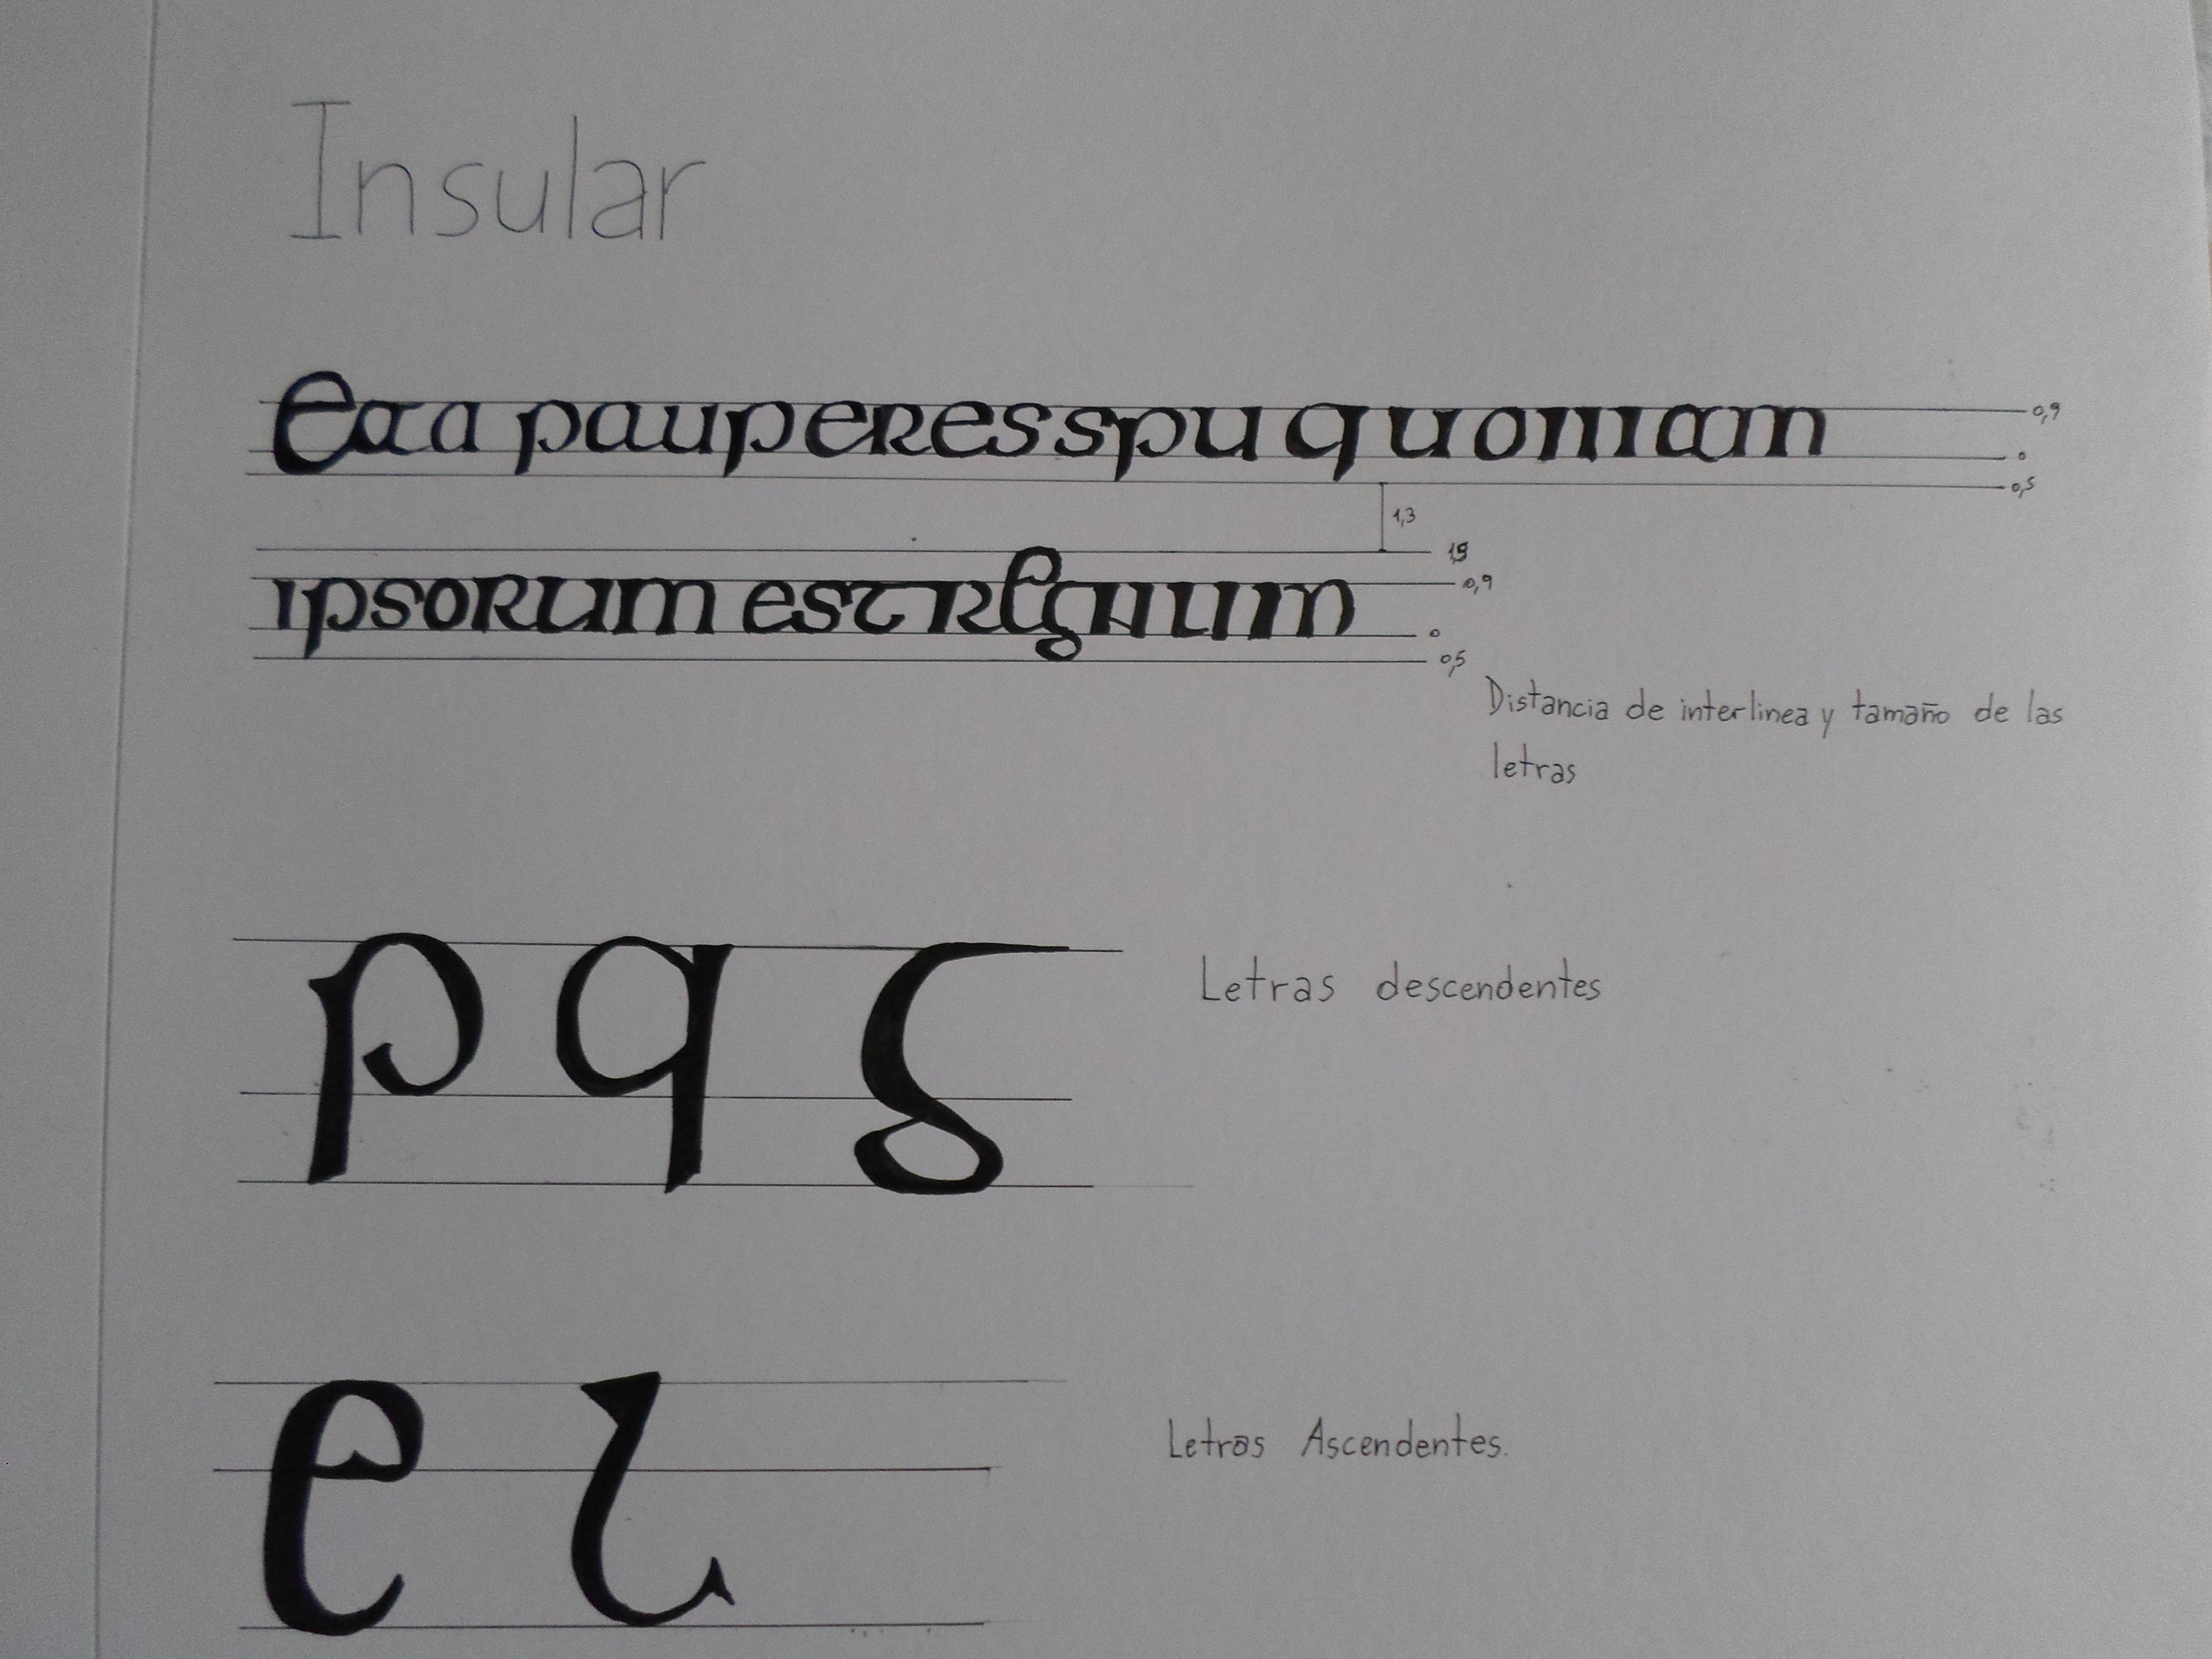 Insular
eaa pauperes spu quoniam
0,9
0
0,5
1,3
ipsorum est regnum
1,5
0,9
0
0,5
Distancia de interlinea y tamaño de las
letras
p q g
Letras descendentes
e l
Letras Ascendentes.